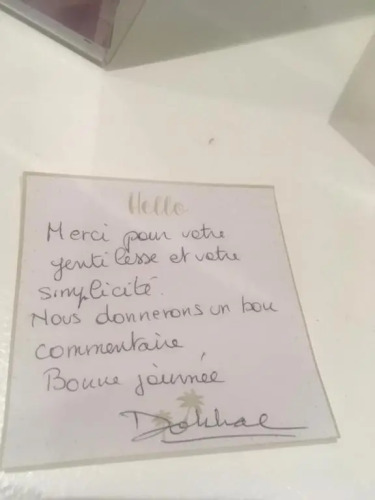 Hello
Merci pour votre
gentilesse et votre
simplicité.
Nous donnerons un bon
commentaire
Bonne journée